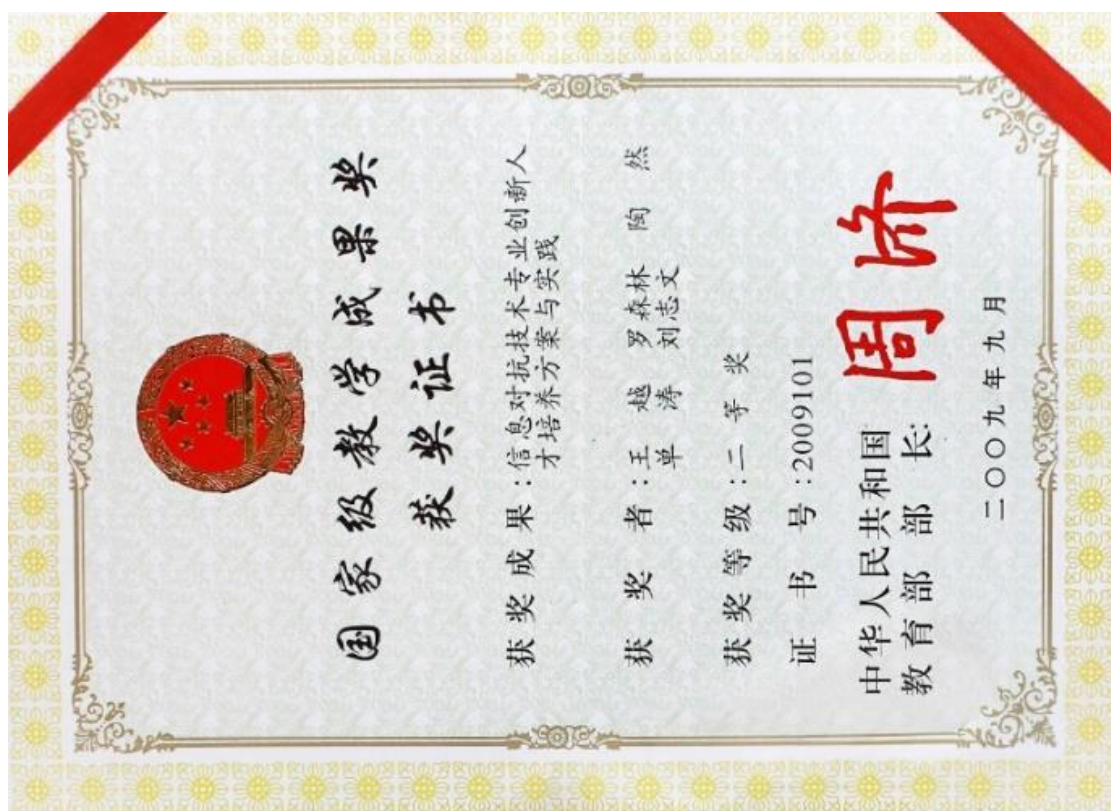 国家级教学成果奖
获奖证书
获奖成果:信息对抗技术专业创新人
才培养方案与实践
获奖者:王越 罗森林 陶然
单涛 刘志文
获奖等级:二等奖
证书号:2009101
中华人民共和国
教育部部长: 周济
二〇〇九年九月